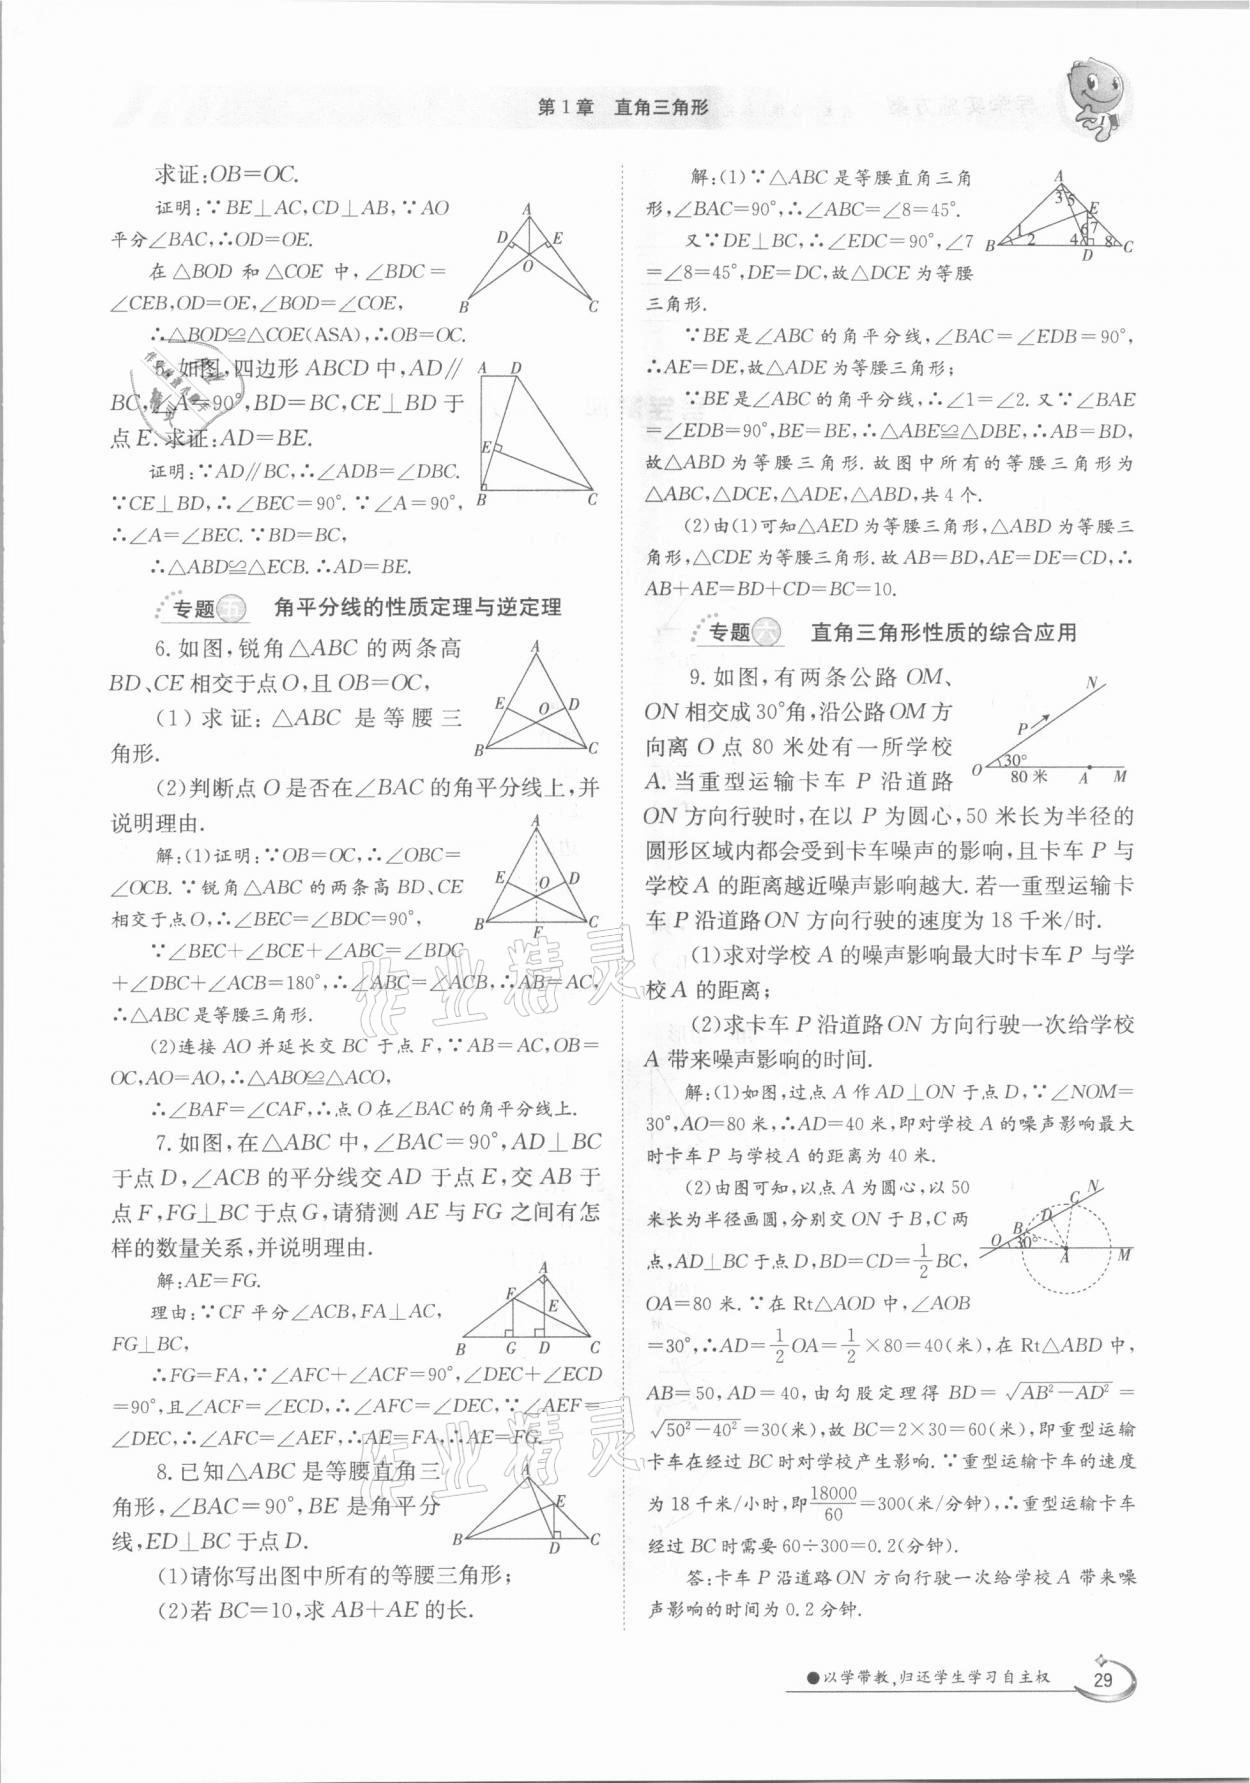 第1章 直角三角形
求证:OB=OC.
证明:∵BE⊥AC,CD⊥AB,∵AO
平分∠BAC,∴OD=OE.
在△BOD 和△COE 中,∠BDC=
∠CEB,OD=OE,∠BOD=∠COE,
∴△BOD≌△COE(ASA),∴OB=OC.
A
D
E
O
B
C
5. 如图,四边形 ABCD 中,AD∥
BC,∠A=90°,BD=BC,CE⊥BD 于
点 E.求证:AD=BE.
证明:∵AD∥BC,∴∠ADB=∠DBC.
∵CE⊥BD,∴∠BEC=90°.∵∠A=90°,
∴∠A=∠BEC.∵BD=BC,
∴△ABD≌△ECB.∴AD=BE.
A D
E
B C
专题五 角平分线的性质定理与逆定理
6. 如图,锐角△ABC 的两条高
BD、CE 相交于点 O,且 OB=OC,
(1) 求证:△ABC 是等腰三
角形.
(2)判断点 O 是否在∠BAC 的角平分线上,并
说明理由.
A
E O D
B C
解:(1)证明:∵OB=OC,∴∠OBC=
∠OCB.∵锐角△ABC 的两条高 BD、CE
相交于点 O,∴∠BEC=∠BDC=90°,
∵∠BEC+∠BCE+∠ABC=∠BDC
+∠DBC+∠ACB=180°,∴∠ABC=∠ACB,∴AB=AC,
∴△ABC 是等腰三角形.
(2)连接 AO 并延长交 BC 于点 F,∵AB=AC,OB=
OC,AO=AO,∴△ABO≌△ACO,
∴∠BAF=∠CAF,∴点 O 在∠BAC 的角平分线上.
A
E O D
B F C
7. 如图,在△ABC 中,∠BAC=90°,AD⊥BC
于点 D,∠ACB 的平分线交 AD 于点 E,交 AB 于
点 F,FG⊥BC 于点 G,请猜测 AE 与 FG 之间有怎
样的数量关系,并说明理由.
解:AE=FG.
理由:∵CF 平分∠ACB,FA⊥AC,
FG⊥BC,
∴FG=FA,∵∠AFC+∠ACF=90°,∠DEC+∠ECD
=90°,且∠ACF=∠ECD,∴∠AFC=∠DEC,∵∠AEF=
∠DEC,∴∠AFC=∠AEF,∴AE=FA,∴AE=FG.
A
F
E
B G D C
8. 已知△ABC 是等腰直角三
角形,∠BAC=90°,BE 是角平分
线,ED⊥BC 于点 D.
(1)请你写出图中所有的等腰三角形;
(2)若 BC=10,求 AB+AE 的长.
A
E
B D C
解:(1)∵△ABC 是等腰直角三角
形,∠BAC=90°,∴∠ABC=∠8=45°.
又∵DE⊥BC,∴∠EDC=90°,∠7
=∠8=45°,DE=DC,故△DCE 为等腰
三角形.
A
3 5
E
6 7
B 1 2 4 8 C
D
∵BE 是∠ABC 的角平分线,∠BAC=∠EDB=90°,
∴AE=DE,故△ADE 为等腰三角形;
∵BE 是∠ABC 的角平分线,∴∠1=∠2.又∵∠BAE
=∠EDB=90°,BE=BE,∴△ABE≌△DBE,∴AB=BD,
故△ABD 为等腰三角形.故图中所有的等腰三角形为
△ABC,△DCE,△ADE,△ABD,共 4 个.
(2)由(1)可知△AED 为等腰三角形,△ABD 为等腰三
角形,△CDE 为等腰三角形.故 AB=BD,AE=DE=CD,∴
AB+AE=BD+CD=BC=10.
专题六 直角三角形性质的综合应用
9. 如图,有两条公路 OM、
ON 相交成 30°角,沿公路 OM 方
向离 O 点 80 米处有一所学校
A.当重型运输卡车 P 沿道路
ON 方向行驶时,在以 P 为圆心,50 米长为半径的
圆形区域内都会受到卡车噪声的影响,且卡车 P 与
学校 A 的距离越近噪声影响越大.若一重型运输卡
车 P 沿道路 ON 方向行驶的速度为 18 千米/时.
(1)求对学校 A 的噪声影响最大时卡车 P 与学
校 A 的距离;
(2)求卡车 P 沿道路 ON 方向行驶一次给学校
A 带来噪声影响的时间.
N
P
30°
O 80 米 A M
解:(1)如图,过点 A 作 AD⊥ON 于点 D,∵∠NOM=
30°,AO=80 米,∴AD=40 米,即对学校 A 的噪声影响最大
时卡车 P 与学校 A 的距离为 40 米.
(2)由图可知,以点 A 为圆心,以 50
米长为半径画圆,分别交 ON 于 B,C 两
点,AD⊥BC 于点 D,BD=CD=1/2BC,
OA=80 米.∵在 Rt△AOD 中,∠AOB
=30°,∴AD=1/2OA=1/2×80=40(米),在 Rt△ABD 中,
AB=50,AD=40,由勾股定理得 BD=√(AB²−AD²)=
√(50²−40²)=30(米),故 BC=2×30=60(米),即重型运输
卡车在经过 BC 时对学校产生影响.∵重型运输卡车的速度
为 18 千米/小时,即18000/60=300(米/分钟),∴重型运输卡车
经过 BC 时需要 60÷300=0.2(分钟).
答:卡车 P 沿道路 ON 方向行驶一次给学校 A 带来噪
声影响的时间为 0.2 分钟.
N
C
D
B
O 30°
A M
作业精灵
作业精灵
●以学带教,归还学生学习自主权
29